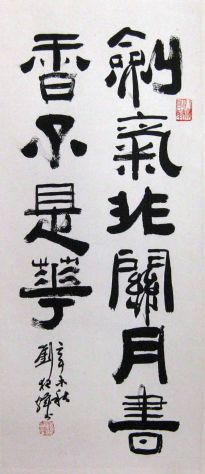 劍氣北關月書
香不是華
辛未秋
劉